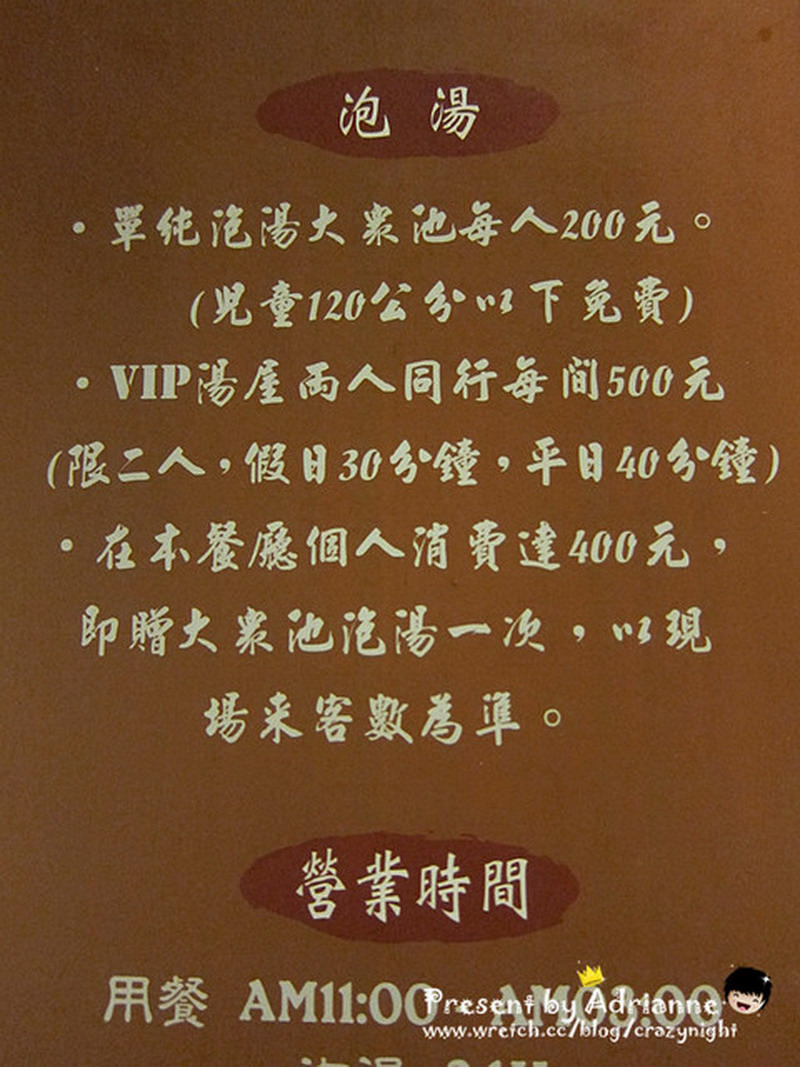 泡湯
·單純泡湯大眾池每人200元。
(児童120公分以下免費)
·VIP湯屋両人同行每間500元
(限二人,假日30分鐘,平日40分鐘)
·在本餐廳個人消費達400元,
即贈大眾池泡湯一次,以現
場来客數為準。
營業時間
用餐 AM11:00 AM03:00
Present by Adrianne
www.wretch.cc/blog/crazynight
泡湯 24H